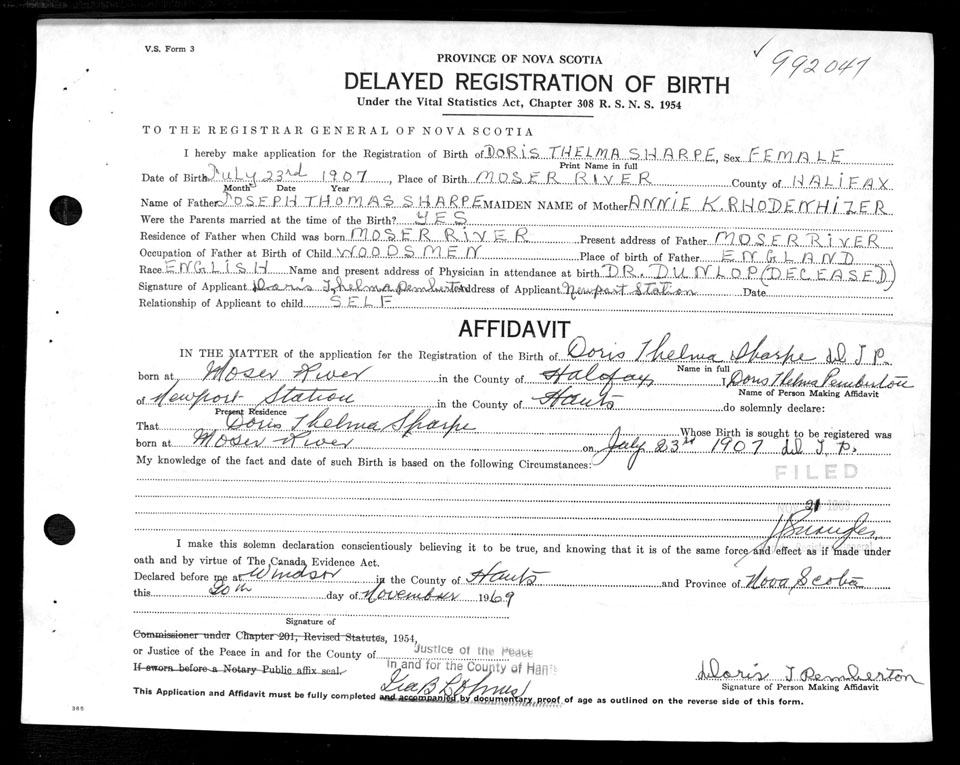 V.S. Form 3
✓ 992047
PROVINCE OF NOVA SCOTIA
DELAYED REGISTRATION OF BIRTH
Under the Vital Statistics Act, Chapter 308 R. S. N. S. 1954
TO THE REGISTRAR GENERAL OF NOVA SCOTIA
I hereby make application for the Registration of Birth of DORIS THELMA SHARPE, Sex FEMALE
Print Name in full
Date of Birth JULY 23rd 1907, Place of Birth MOSER RIVER County of HALIFAX
Month Date Year
Name of Father JOSEPH THOMAS SHARPE MAIDEN NAME of Mother ANNIE K. RHODENHIZER
Were the Parents married at the time of the Birth? YES
Residence of Father when Child was born MOSER RIVER Present address of Father MOSER RIVER
Occupation of Father at Birth of Child WOODSMEN Place of birth of Father ENGLAND
Race ENGLISH Name and present address of Physician in attendance at birth DR. DUNLOP (DECEASED)
Signature of Applicant Doris Thelma Pemberton Address of Applicant Newport Station Date
Relationship of Applicant to child SELF
AFFIDAVIT
IN THE MATTER of the application for the Registration of Birth of Doris Thelma Sharpe dd T. P.
Name in full
born at Moser River in the County of Halofax, I Doris Thelma Pemberton
Name of Person Making Affidavit
of Newport Station in the County of Hants do solemnly declare:
Present Residence
That Doris Thelma Sharpe Whose Birth is sought to be registered was
born at Moser River on July 23rd 1907 dd T. P.
My knowledge of the fact and date of such Birth is based on the following Circumstances:
FILED
21
I make this solemn declaration conscientiously believing it to be true, and knowing that it is of the same force and effect as if made under
oath and by virtue of The Canada Evidence Act.
Declared before me at Windsor in the County of Hants and Province of Nova Scotia
this 20th day of November 1969
Signature of
Commissioner under Chapter 201, Revised Statutes, 1954,
or Justice of the Peace in and for the County of Justice of the Peace
in and for the County of Hants
If sworn before a Notary Public affix seal
Doris T Pemberton
Signature of Person Making Affidavit
This Application and Affidavit must be fully completed and accompanied by documentary proof of age as outlined on the reverse side of this form.